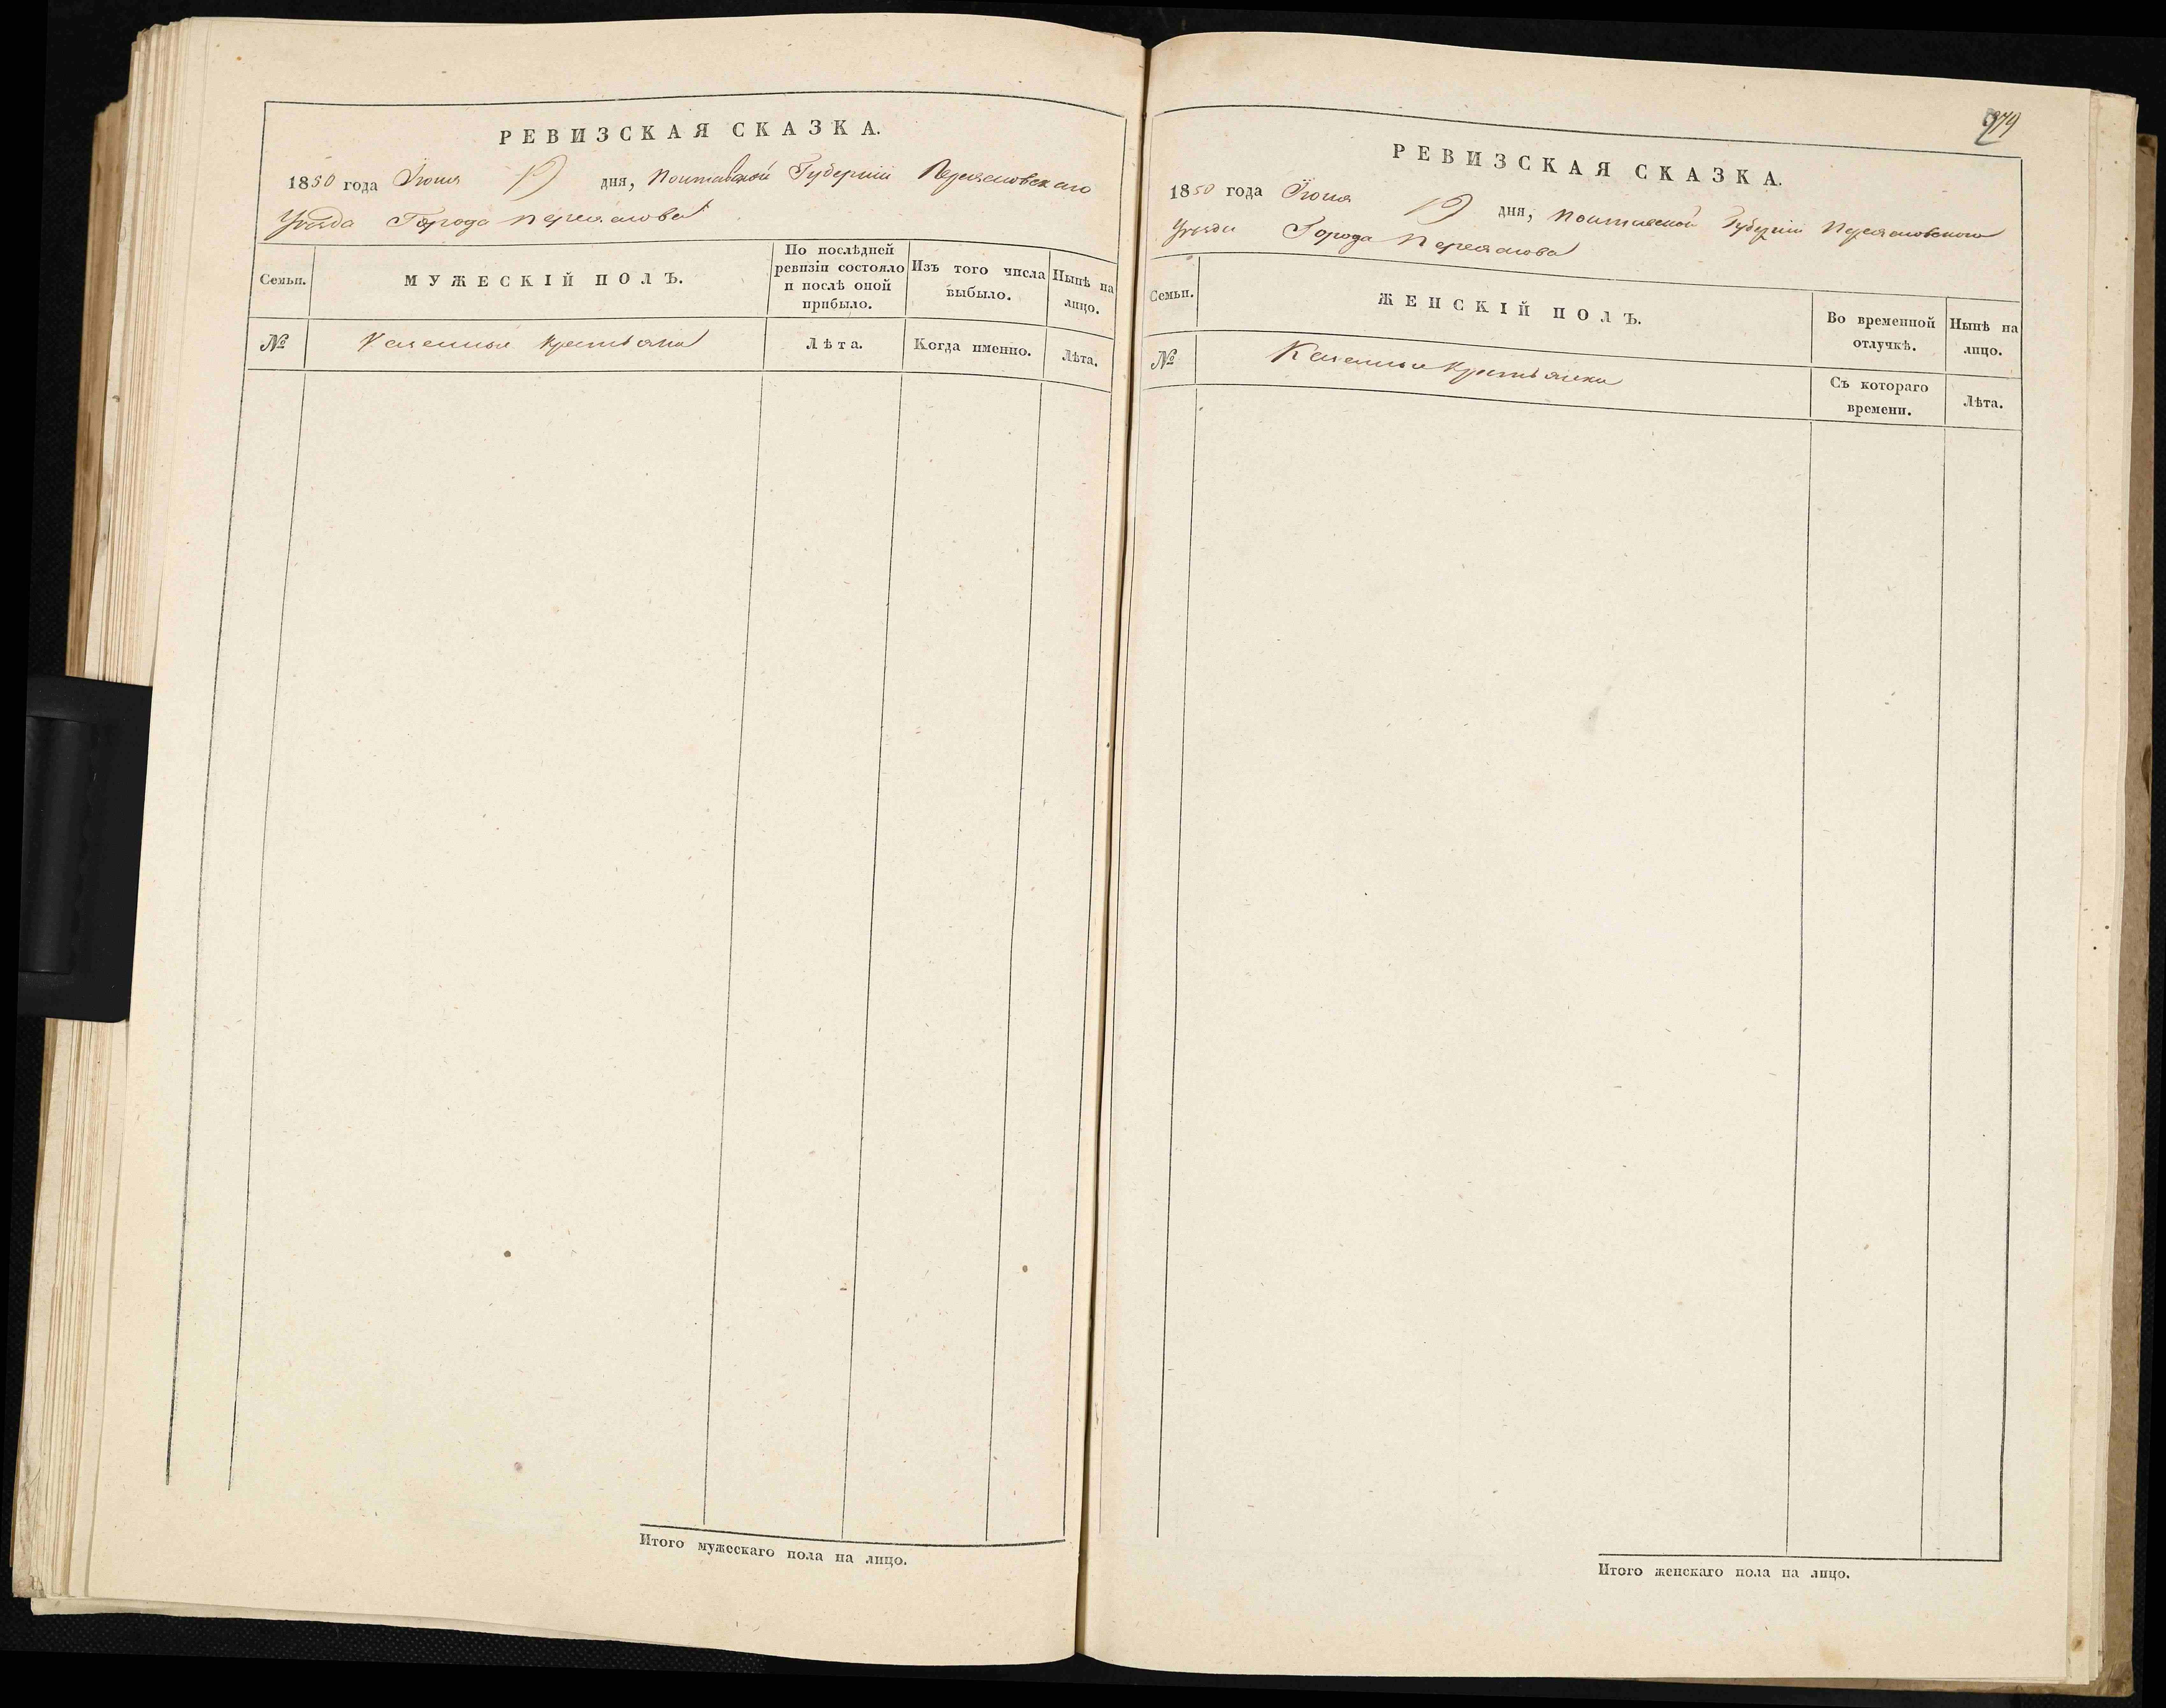 РЕВИЗСКАЯ СКАЗКА.
1850 года Іюня 19 дня, Полтавской Губерніи Переяславскаго
Уѣзда Города Переяслова
Семьи.
МУЖЕСКІЙ ПОЛЪ.
По послѣдней
ревизіи состояло
и послѣ оной
прибыло.
Изъ того числа
выбыло.
Нынѣ на
лицо.
№
Казенные крестьяне
Лѣта.
Когда именно.
Лѣта.
Итого мужескаго пола на лицо.
279
РЕВИЗСКАЯ СКАЗКА.
1850 года Іюня 19 дня, Полтавской Губерніи Переясловского
Уѣзда Города Переяслова
Семьи.
ЖЕНСКІЙ ПОЛЪ.
Во временной
отлучкѣ.
Нынѣ на
лицо.
№
Казенные крестьянки
Съ котораго
времени.
Лѣта.
Итого женскаго пола на лицо.